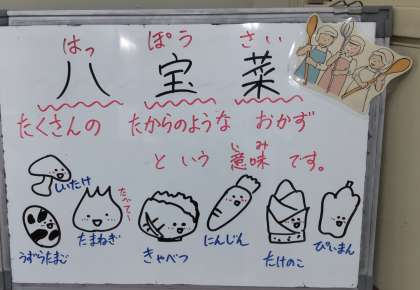 はっ ぽう さい
八 宝 菜
たくさんの たからのような おかず
いみ
という 意味 です。
しいたけ
たべてー
うずらたまご たまねぎ きゃべつ にんじん たけのこ ぴーまん